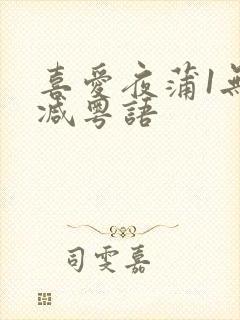 喜愛夜蒲1無
減粵語
司雯嘉